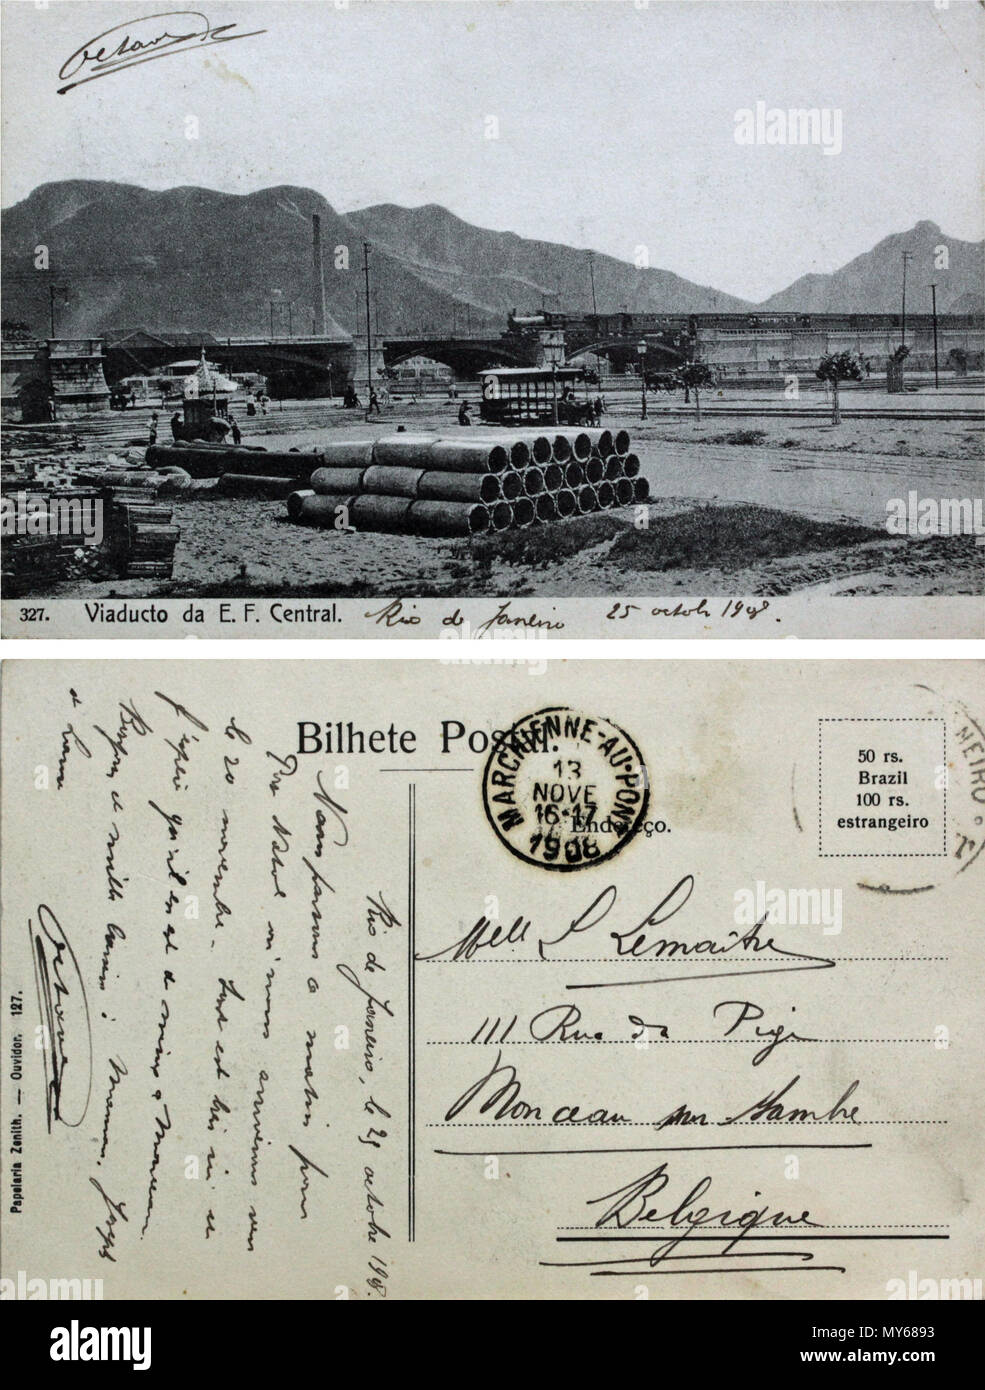 Octave
327. Viaducto da E. F. Central. Rio de Janeiro 25 octobr 1908.
Bilhete Postal.
MARCHIENNE-AU-PONT
13
NOVE
16-17
1908
NEIRO
50 rs.
Brazil
100 rs.
estrangeiro
Endereço.
Melle L Lemaître
111 Rue du
Monceau sur Sambre
Belgique
Rio de Janeiro, le 25 octobre 1908.
Nous passons ce matin pour
Natal où nous arriverons vers
le 20 novembre - Tout est très
J'espère qu'il en est de même à Monceau.
et mille baisers à Maman, Joseph
et
Octave
Papelaria Zenith. — Ouvidor. 127.
alamy
alamy
Image ID: MY6893
www.alamy.com